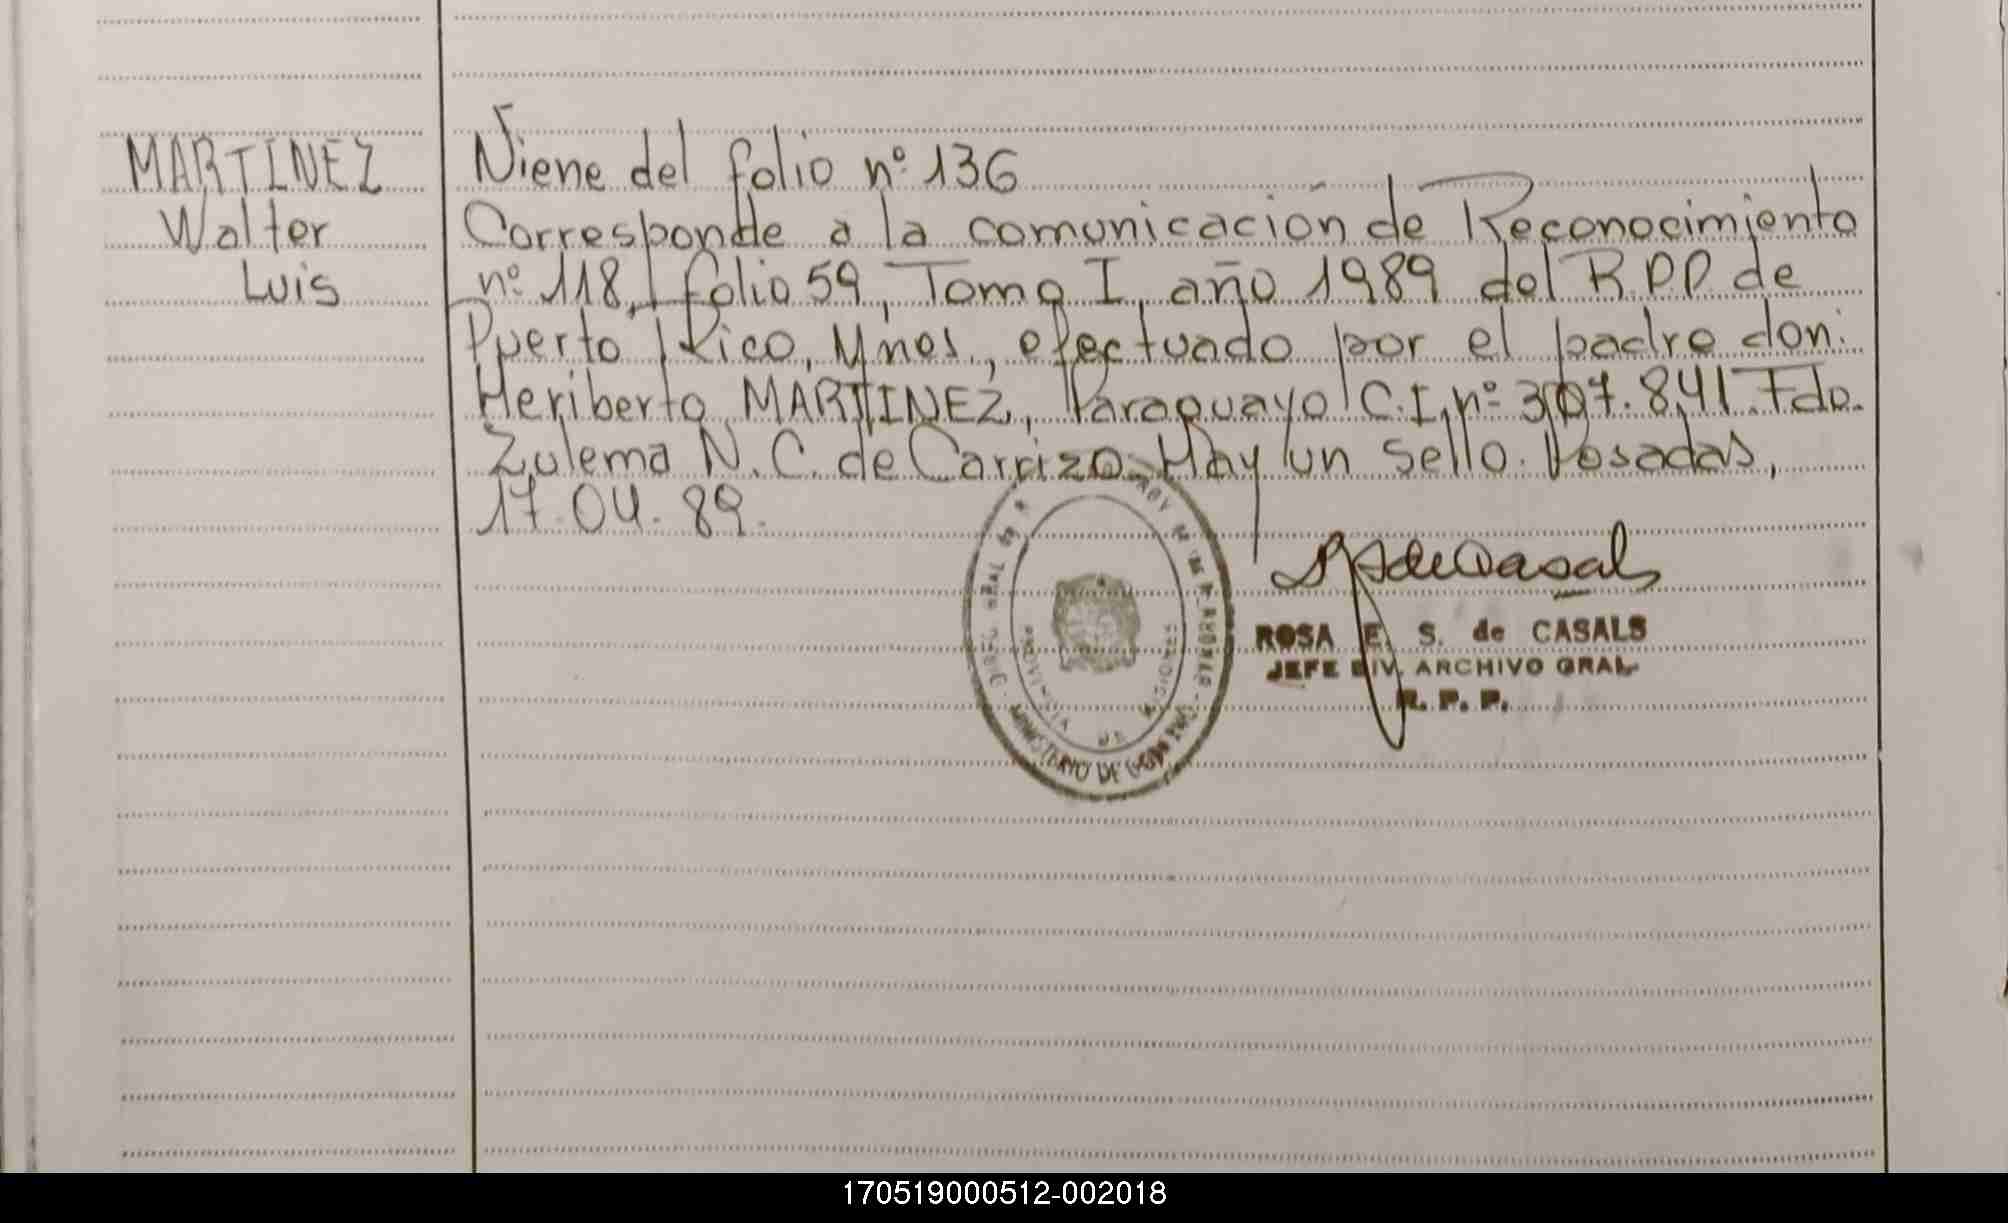 MARTINEZ
Walter
Luis
Viene del folio nº 136
Corresponde a la comunicación de Reconocimiento
nº 118, folio 59, Tomo I, año 1989 del R.P.P. de
Puerto Rico, Mnes., efectuado por el padre don:
Heriberto MARTINEZ, Paraguayo C.I. nº 307.841. Fdo.
Zulema N. C. de Carrizo. Hay un sello. Posadas,
17.04.89.
MINISTERIO DE
PROVINCIA DE MISIONES
ROSA E. S. de CASALS
JEFE DIV. ARCHIVO GRAL
R. P. P.
170519000512-002018